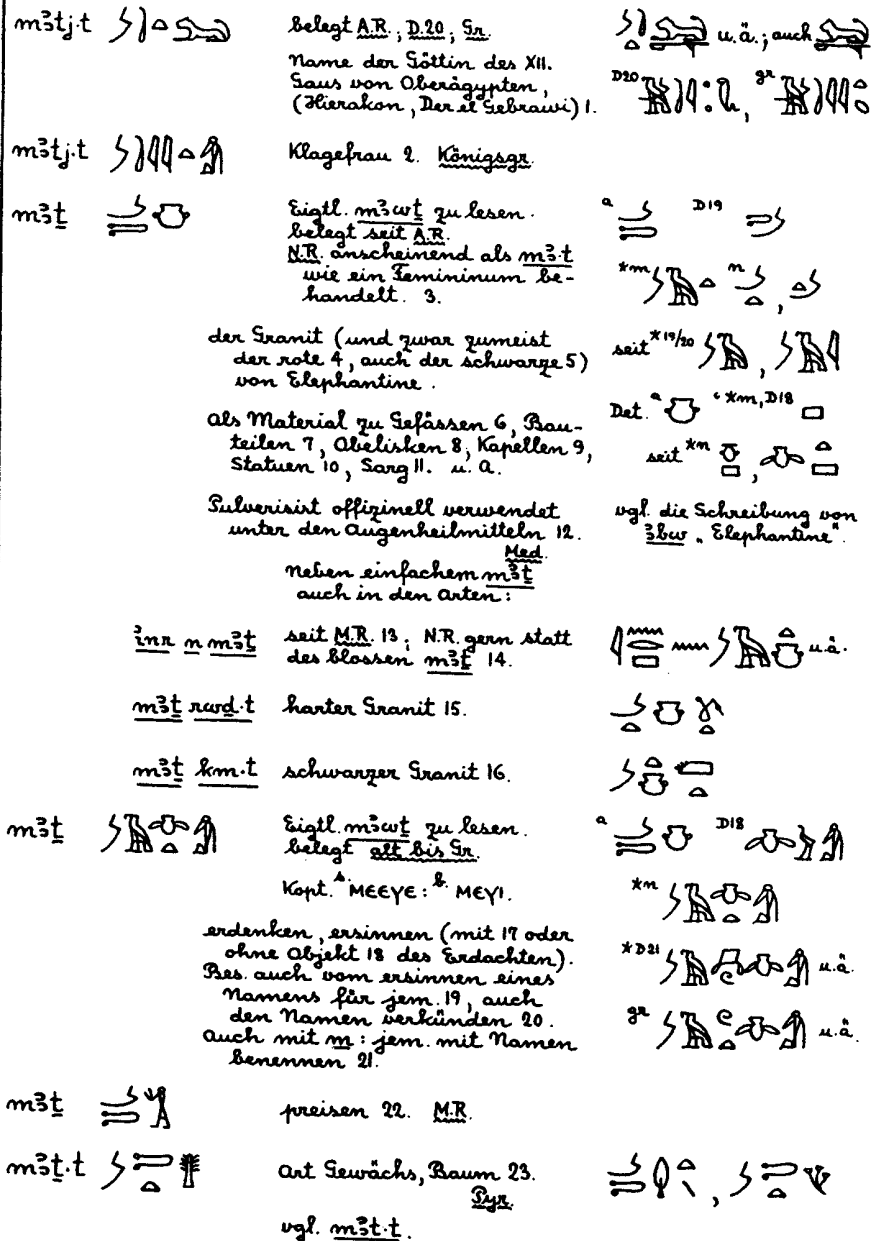 mꜣtj·t belegt A.R.; D.20; Gr. u.ä.; auch
Name der Göttin des XII.
Gaus von Oberägypten, D20 , gr
(Hierakon, Der el Gebrawi) 1.
mꜣtj·t Klagefrau 2. Königsgr.
mꜣṯ Eigtl. mꜣwṯ zu lesen. a D19
belegt seit A.R.
N.R. anscheinend als mꜣ·t
wie ein Femininum be- *m n ,
handelt. 3.
der Granit (und zwar zumeist seit *19/20 ,
der rote 4, auch der schwarze 5)
von Elephantine.
Det. a c *m, D18
als Material zu Gefässen 6, Bau-
teilen 7, Obelisken 8, Kapellen 9, seit *n ,
Statuen 10, Sarg 11. u. a.
Pulverisirt offizinell verwendet vgl. die Schreibung von
unter den Augenheilmitteln 12. ꜣbw „Elephantine“.
Med.
neben einfachem mꜣṯ
auch in den Arten:
inr n mꜣṯ seit M.R. 13; N.R. gern statt u.ä.
des blossen mꜣṯ 14.
mꜣṯ rwd·t harter Granit 15.
mꜣṯ km·t schwarzer Granit 16.
mꜣṯ Eigtl. mꜣwṯ zu lesen. a D18
belegt alt bis Gr.
Kopt. S. ⲙⲉⲉⲩⲉ: B. ⲙⲉⲩⲓ. *n
erdenken, ersinnen (mit 17 oder
ohne Objekt 18 des Erdachten). *D21 u.ä.
Bes. auch vom ersinnen eines
Namens für jem. 19, auch
den Namen verkünden 20. gr u.ä.
auch mit m: jem. mit Namen
benennen 21.
mꜣṯ preisen 22. M.R.
mꜣṯ·t Art Gewächs, Baum 23. ,
Pyr.
vgl. mꜣt·t.